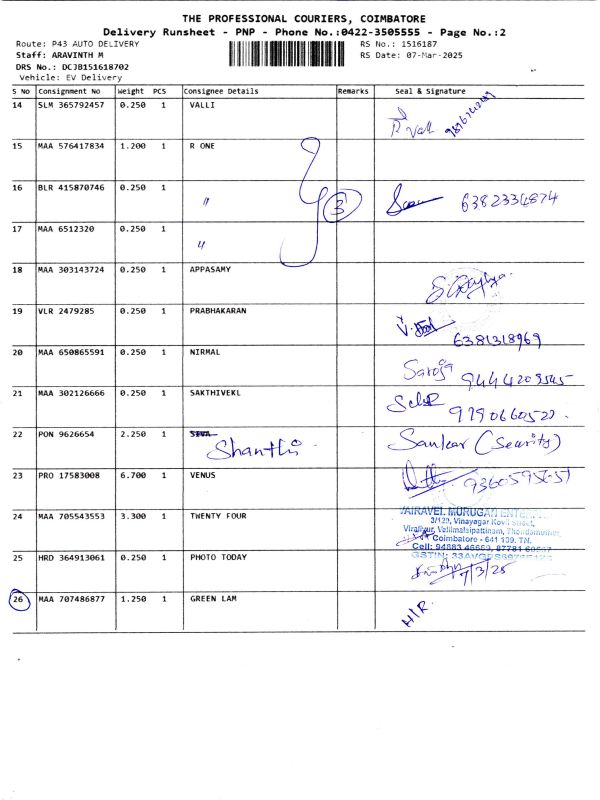 THE PROFESSIONAL COURIERS, COIMBATORE
Delivery Runsheet - PNP - Phone No.:0422-3505555 - Page No.:2
Route: P43 AUTO DELIVERY
RS No.: 1516187
Staff: ARAVINTH M
RS Date: 07-Mar-2025
DRS No.: DCJB151618702
Vehicle: EV Delivery
S No Consignment No Weight PCS Consignee Details Remarks Seal & Signature
14 SLM 365792457 0.250 1 VALLI
15 MAA 576417834 1.200 1 R ONE
16 BLR 415870746 0.250 1 " 3 6382334874
17 MAA 6512320 0.250 1 "
18 MAA 303143724 0.250 1 APPASAMY
19 VLR 2479285 0.250 1 PRABHAKARAN
6381318969
20 MAA 650865591 0.250 1 NIRMAL Saroja
21 MAA 302126666 0.250 1 SAKTHIVEKL
22 PON 9626654 2.250 1 SIVA Shanthi Sankar (Security)
23 PRO 17583008 6.700 1 VENUS
24 MAA 705543553 3.300 1 TWENTY FOUR
VAIRAVEL MURUGAN
3/129, Vinayagar Kovil Street,
Coimbatore - 641 109, TN.
Cell: 94883 46659, 87781
25 HRD 364913061 0.250 1 PHOTO TODAY
7/3/25
26 MAA 707486877 1.250 1 GREEN LAM H/R.